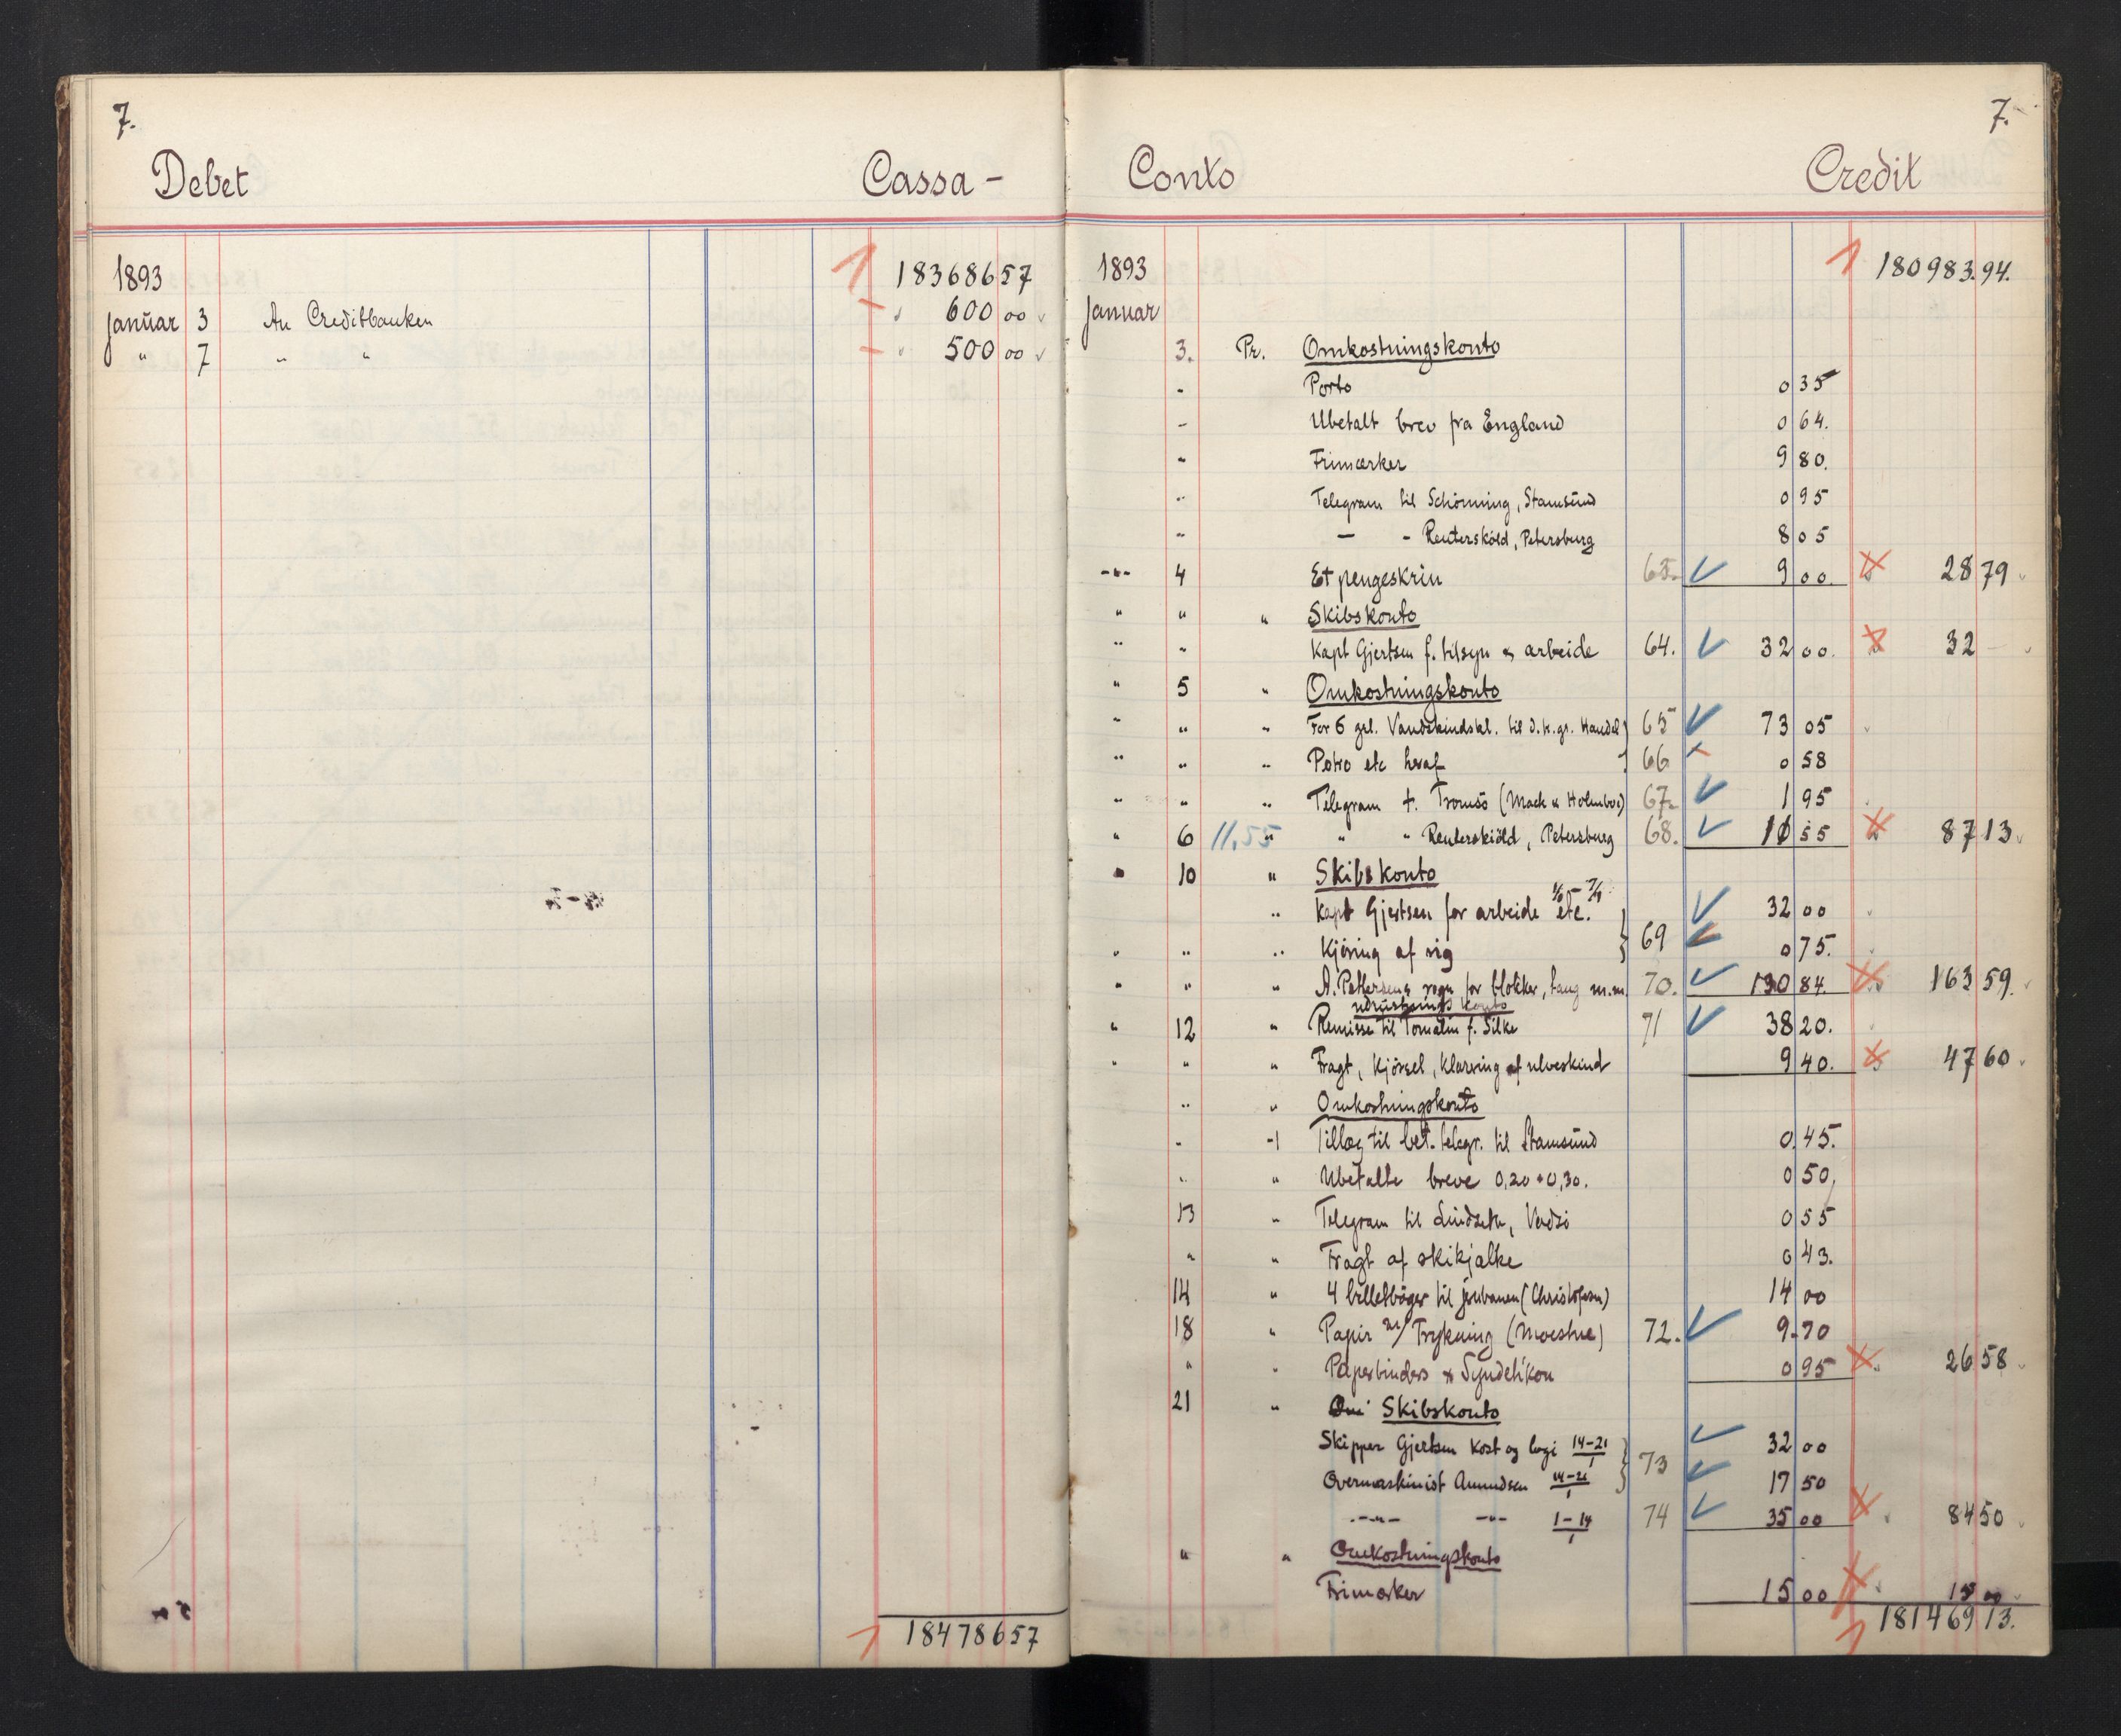 7.
Debet Cassa-
1893 183686 57
Januar 3 An Creditbanken 600 00
" 7 " " 500 00
184786 57
7.
Conto Credit
1893 180983.94.
Januar
3. Pr. Omkostningskonto
- Porto 0 35
- Ubetalt brev fra England 0 64.
- Frimærker 9 80.
- Telegram til Schönning, Stamsund 0 95
- — - Reutersköld, Petersburg 8 05
-"- 4 Et pengeskrin 63. 9 00. 28 79
" " " Skibskonto
" " Kapt Gjertsen f. tilsyn & arbeide 64. 32 00. 32 —
" 5 " Omkostningskonto
" " " For 6 grl. Vandskindskl. til d. k. gr. Handel 65 73 05
" " " Potro etc heraf 66 0 58
" " " Telegram t. Tromsö (Mack & Holmboe) 67. 1 95
" 6 11,55 " " " Reuterskiöld, Petersburg 68. 11 55 87 13
" 10 " Skibskonto
" Kapt Gjertsen for arbeide etc. 1/6 - 7/1 32 00
" " " Kjöring af rig 69 0 75.
" " " A. Pettersens regn for blokker, taug m.m. 70. 130 84. 163 59.
udrustnings konto
" 12 " Remisse til Tomalin f. Silke 71 38 20.
" " " Fragt, Kjörsel, Klarering af ulveskind 9 40. 47 60
" " Omkostningskonto
- -1 Tillæg til bet. telegr. til Stamsund 0.45.
" " Ubetalte breve 0,20 + 0,30. 0 50.
13 " Telegram til Lindseth, Vadsö 0 55
" " Fragt af skikjælke 0 43.
14 " 4 billetböger til jernbanen (Christofersen) 14 00
18 " Papir m/ Trykning (Moestue) 72. 9.70
" " Paperbinders & Syndetikon 0 95 26 58
21 " Skibskonto
Skipper Gjertsen Kost og logi 14-21/1 73 32 00
Overmaskinist Amundsen 14-21/1 17 50
-"- -"- 1-14/1 74 35 00 84 50
" " Omkostningskonto
Frimærker 15 00 15 00
181469 13.